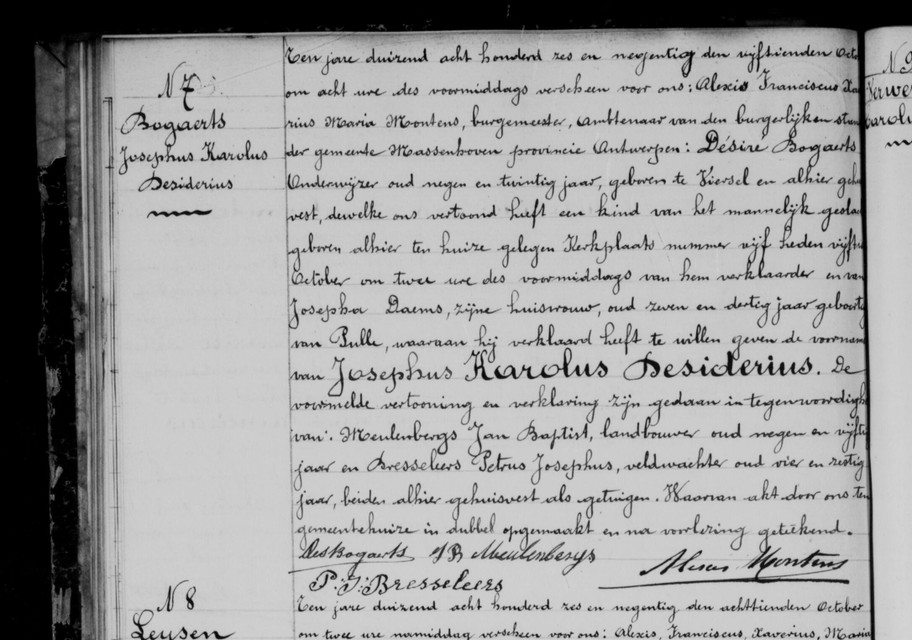 N 7
Bogaerts
Josephus Karolus
Desiderius
Ten jare duizend acht honderd zes en negentig den vijftienden Octo
om acht ure des voormiddags verscheen voor ons: Alexis Franciscus Xa
rius Maria Montens, burgemeester, Ambtenaar van den burgerlijken stan
der gemeente Massenhoven provincie Antwerpen: Désiré Bogaerts
Onderwijzer oud negen en twintig jaar, geboren te Viersel en alhier gehu
vest, dewelke ons vertoond heeft een kind van het mannelijk geslac
geboren alhier ten huize gelegen Kerkplaats nummer vijf heden vijftie
October om twee ure des voormiddags van hem verklaarder en van
Josepha Daems, zijne huisvrouw, oud zeven en dertig jaar geboorti
van Pulle, waaraan hij verklaard heeft te willen geven de voornam
van Josephus Karolus Desiderius. De
voormelde vertooning en verklaring zijn gedaan in tegenwoordigh
van: Meulenbergs Jan Baptist, landbouwer oud negen en vijfti
jaar en Bresseleers Petrus Josephus, veldwachter oud vier en zestig
jaar, beiden alhier gehuisvest als getuigen. Waarvan akt door ons ten
gemeentehuize in dubbel opgemaakt en na voorlezing geteekend.
Des Bogaerts JB Meulenbergs
Alexis Montens
P. J. Bresseleers
N 8
Leysen
Ten jare duizend acht honderd zes en negentig den achttienden October
om twee ure namiddag verscheen voor ons: Alexis, Franciscus, Xaverius, Maria
N
Verwe
Caroli